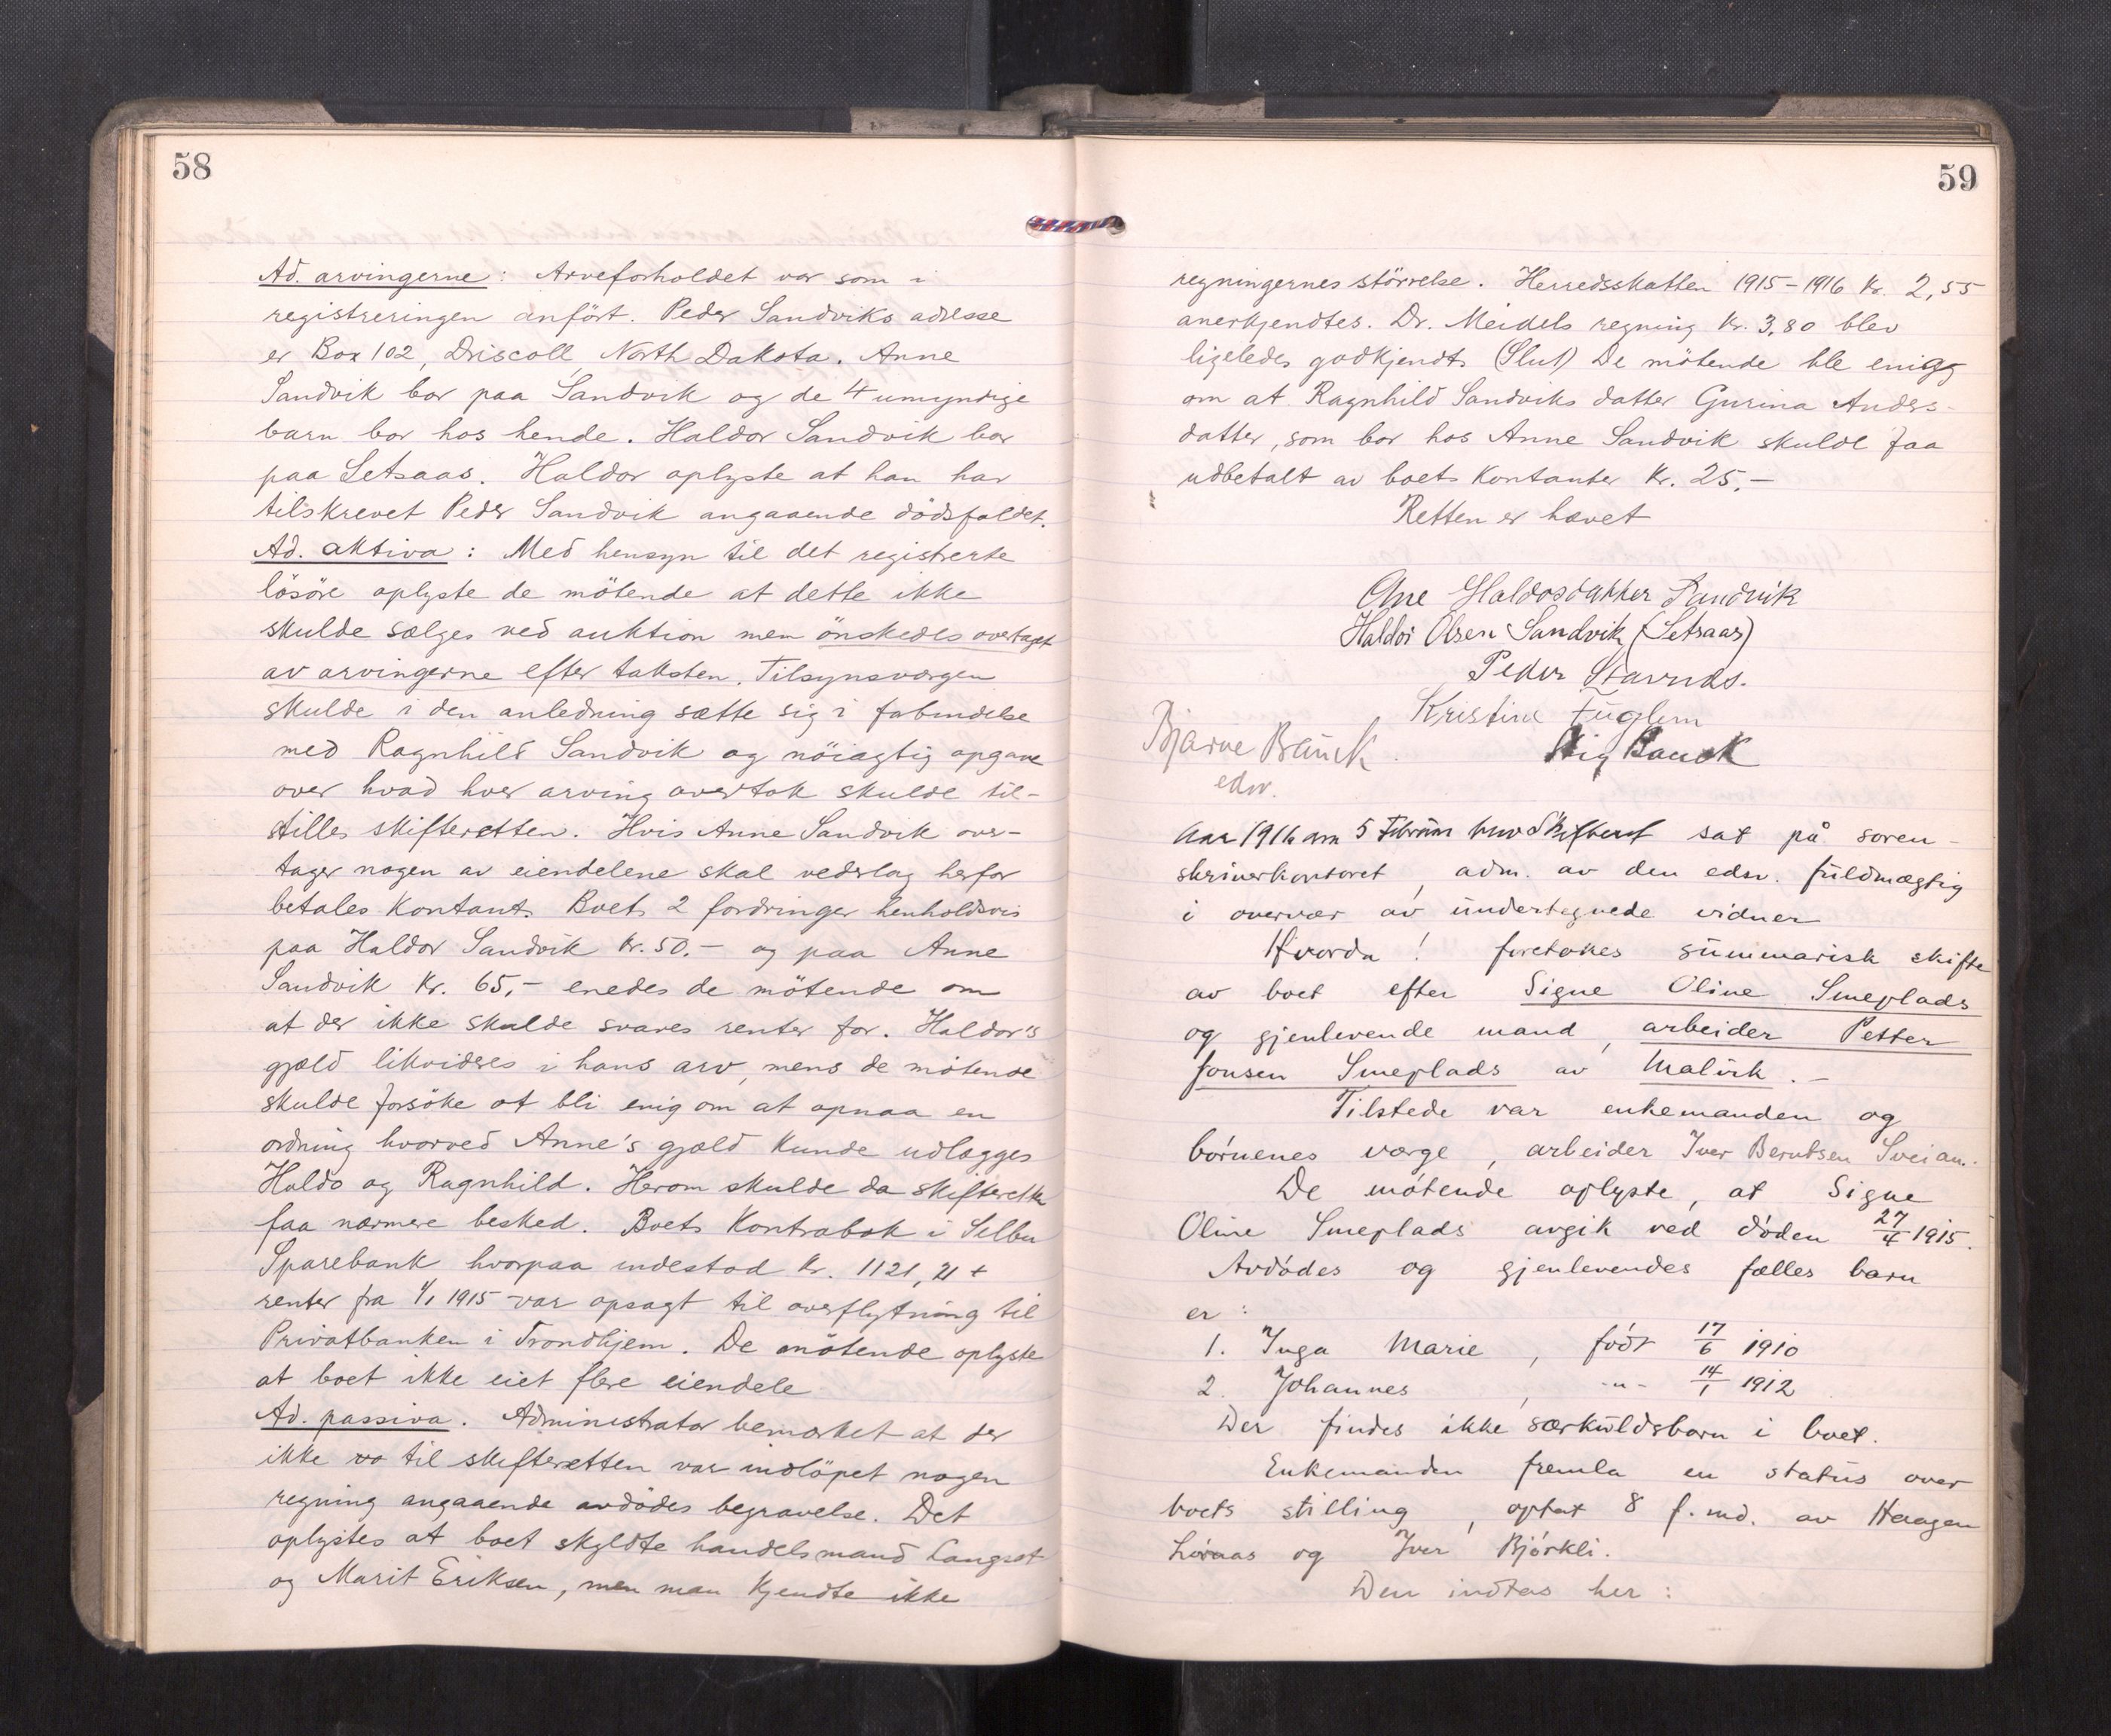 58
Ad. arvingerne: Arveforholdet var som i
registreringen anfört. Peder Sandviks adresse
er Box 102, Driscoll, North Dakota. Anne
Sandvik bor paa Sandvik og de 4 umyndige
barn bor hos hende. Haldor Sandvik bor
paa Setsaas. Haldor oplyste at han har
tilskrevet Peder Sandvik angaaende dödsfaldet.
Ad. aktiva: Med hensyn til det registrerte
lösöre oplyste de mötende at dette ikke
skulde sælges ved auktion men önskedes overtaget
av arvingerne efter taksten. Tilsynsværgen
skulde i den anledning sætte sig i forbindelse
med Ragnhild Sandvik og nöiagtig opgave
over hvad hver arving overtok skulde til-
stilles skifteretten. Hvis Anne Sandvik over-
tager nogen av eiendelene skal vederlag herfor
betales kontant. Boets 2 fordringer henholdsvis
paa Haldor Sandvik kr. 50.- og paa Anne
Sandvik kr. 65,- enedes de mötende om
at der ikke skulde svares renter for. Haldor's
gjæld likvideres i hans arv, mens de mötende
skulde forsöke at bli enig om at opnaa en
ordning hvorved Anne's gjæld kunde udlægges
Haldo og Ragnhild. Herom skulde da skifteretten
faa nærmere besked. Boets Kontrabok i Selbu
Sparebank hvorpaa indestod kr. 1121,21 +
renter fra 1/1 1915 var opsagt til overflytning til
Privatbanken i Trondhjem. De mötende oplyste
at boet ikke eiet flere eiendele
Ad. passiva. Administrator bemerket at der
ikke va til skifteretten var indlöpet nogen
regning angaaende avdödes begravelse. Det
oplystes at boet skyldte handelsmand Langset
og Marit Eriksen, men man kjendte ikke
59
regningernes störrelse. Herredsskatten 1915-1916 kr. 2,55
anerkjendtes. Dr. Meidels regning kr. 3,80 blev
ligeledes godkjendt. (Slut) De mötende ble enigg
om at Ragnhild Sandviks datter Gurina Anders-
datter, som bor hos Anne Sandvik skulde faa
udbetalt av boets kontanter kr. 25,-
Retten er hævet
Ane Haldosdatter Sandvik
Haldor Olsen Sandvik (Setsaas)
Peder Stavnes.
Kristine Fuglem
Bjarne Bauck
Stig Bauck
edsv.
Aar 1916 den 5 Februar blev Skifteret sat på soren-
skriverkontoret, adm. av den edsv. fuldmægtig
i overvær av undertegnede vidner
Hvorda! foretokes summarisk skifte
av boet efter Signe Oline Smeplads
og gjenlevende mand, arbeider Petter
Jonsen Smeplads av Malvik.-
Tilstede var enkemanden og
börnenes værge, arbeider Iver Berntsen Sveian.
De mötende oplyste, at Signe
Oline Smeplads avgik ved döden 27/4 1915.
Avdödes og gjenlevendes fælles barn
er:
1. Inga Marie, födt 17/6 1910
2. Johannes, -"- 14/1 1912
Der findes ikke særkuldsbarn i boet.
Enkemanden fremla en status over
boets stilling, optat 8 f. md. av Haagen
og Iver Björkli.
Den indtas her: